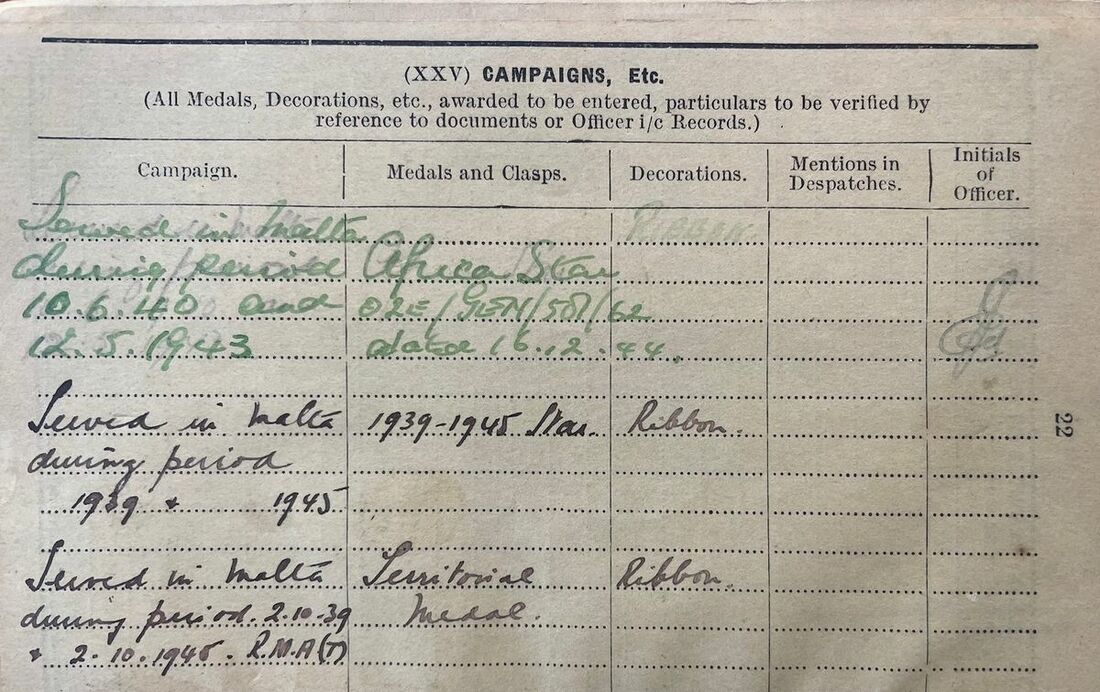 (XXV) CAMPAIGNS, Etc.
(All Medals, Decorations, etc., awarded to be entered, particulars to be verified by
reference to documents or Officer i/c Records.)
Campaign. Medals and Clasps. Decorations. Mentions in Despatches. Initials of Officer.
Served in Malta RIBBON
during period Africa Star
10.6.40 and 02E/GEN/581/62
12.5.1943 dated 16.12.44.
Served in Malta 1939-1945 Star. Ribbon.
during period
1939 & 1945
22
Served in Malta Territorial Ribbon.
during period. 2.10.39 Medal.
& 2.10.1945. R.M.A(T)